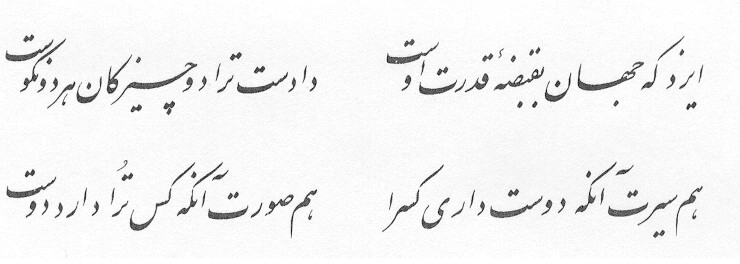 ایزد که جهان بقبضهٔ قدرت اوست دادست ترا دو چیز کان هر دو نکوست
هم سیرت آنکه دوست داری کسرا هم صورت آنکه کس تُرا دارد دوست